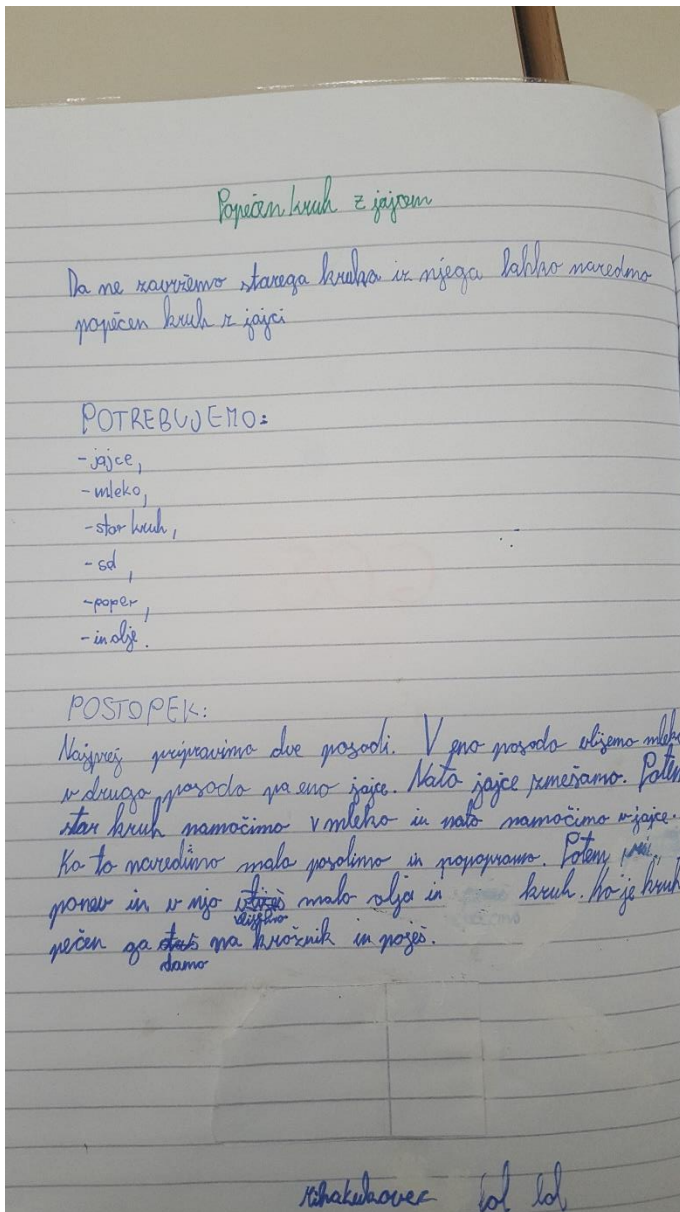 Popečen kruh z jajcem
Da ne zavržemo starega kruha iz njega lahko naredmo
popečen kruh z jajci
POTREBUJEMO:
-jajce,
-mleko,
-star kruh,
-sol,
-poper,
-in olje.
POSTOPEK:
Najprej pripravimo dve posodi. V eno posodo vlijemo mleko
v drugo posodo pa eno jajce. Nato jajce zmešamo. Potem
star kruh namočimo v mleko in nato namočimo v jajce.
Ko to naredimo malo posolimo in popopramo. Potem
ponev in v njo malo olja in kruh. Ko je kruh
pečen ga na krožnik in poješ.
damo
lol lol